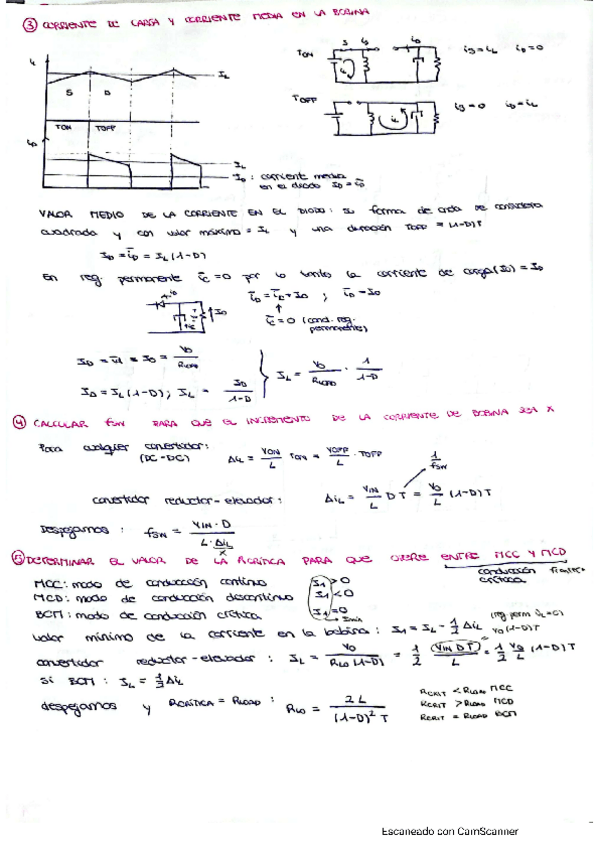 ③ CORRIENTE DE CARGA Y CORRIENTE MEDIA EN LA BOBINA
iL
IL
S D
TON TOFF
iD
IL
ID : corriente media
en el diodo ID = iD
TON S iS iD iS = iL iD = 0
iL
TOFF iS = 0 iD = iL
iL
VALOR MEDIO DE LA CORRIENTE EN EL DIODO: Su forma de onda se considera
cuadrada y con valor máximo = IL y una duración TOFF = (1-D)T
ID = iD = IL (1-D)
En reg. permanente iC = 0 por lo tanto la corriente de carga (IO) = ID
iD = iC + IO ; iD = IO
iC = 0 (cond. reg.
permanente)
ID = IO = VO / RLOAD
ID = IL (1-D); IL = ID / 1-D
IL = VO / RLOAD · 1 / 1-D
④ CALCULAR fSW PARA QUE EL INCREMENTO DE LA CORRIENTE DE BOBINA SEA X
Para cualquier convertidor:
(DC-DC)
ΔiL = VON / L TON = VOFF / L · TOFF
1 / fSW
convertidor reductor-elevador: ΔiL = VIN / L D T = VO / L (1-D) T
Despejamos : fSW = VIN · D / L · ΔiL
X
⑤ DETERMINAR EL VALOR DE LA RCRÍTICA PARA QUE OPERE ENTRE MCC Y MCD
conducción
crítica
MCC: modo de conducción continuo I1 > 0
MCD: modo de conducción descontinuo I1 < 0
BCM: modo de conducción crítica I1 = 0
Imin
valor mínimo de la corriente en la bobina : I1 = IL - 1/2 ΔiL
convertidor reductor-elevador : IL = VO / RLO (1-D) = 1/2 VIN DT / L = 1/2 VO / L (1-D) T
VO (1-D) T
Si BCM : IL = 1/2 ΔiL
despejamos y RCRÍTICA = RLOAD : RLO = 2 L / (1-D)² T
RCRIT < RLOAD MCC
RCRIT > RLOAD MCD
RCRIT = RLOAD BCM
Escaneado con CamScanner